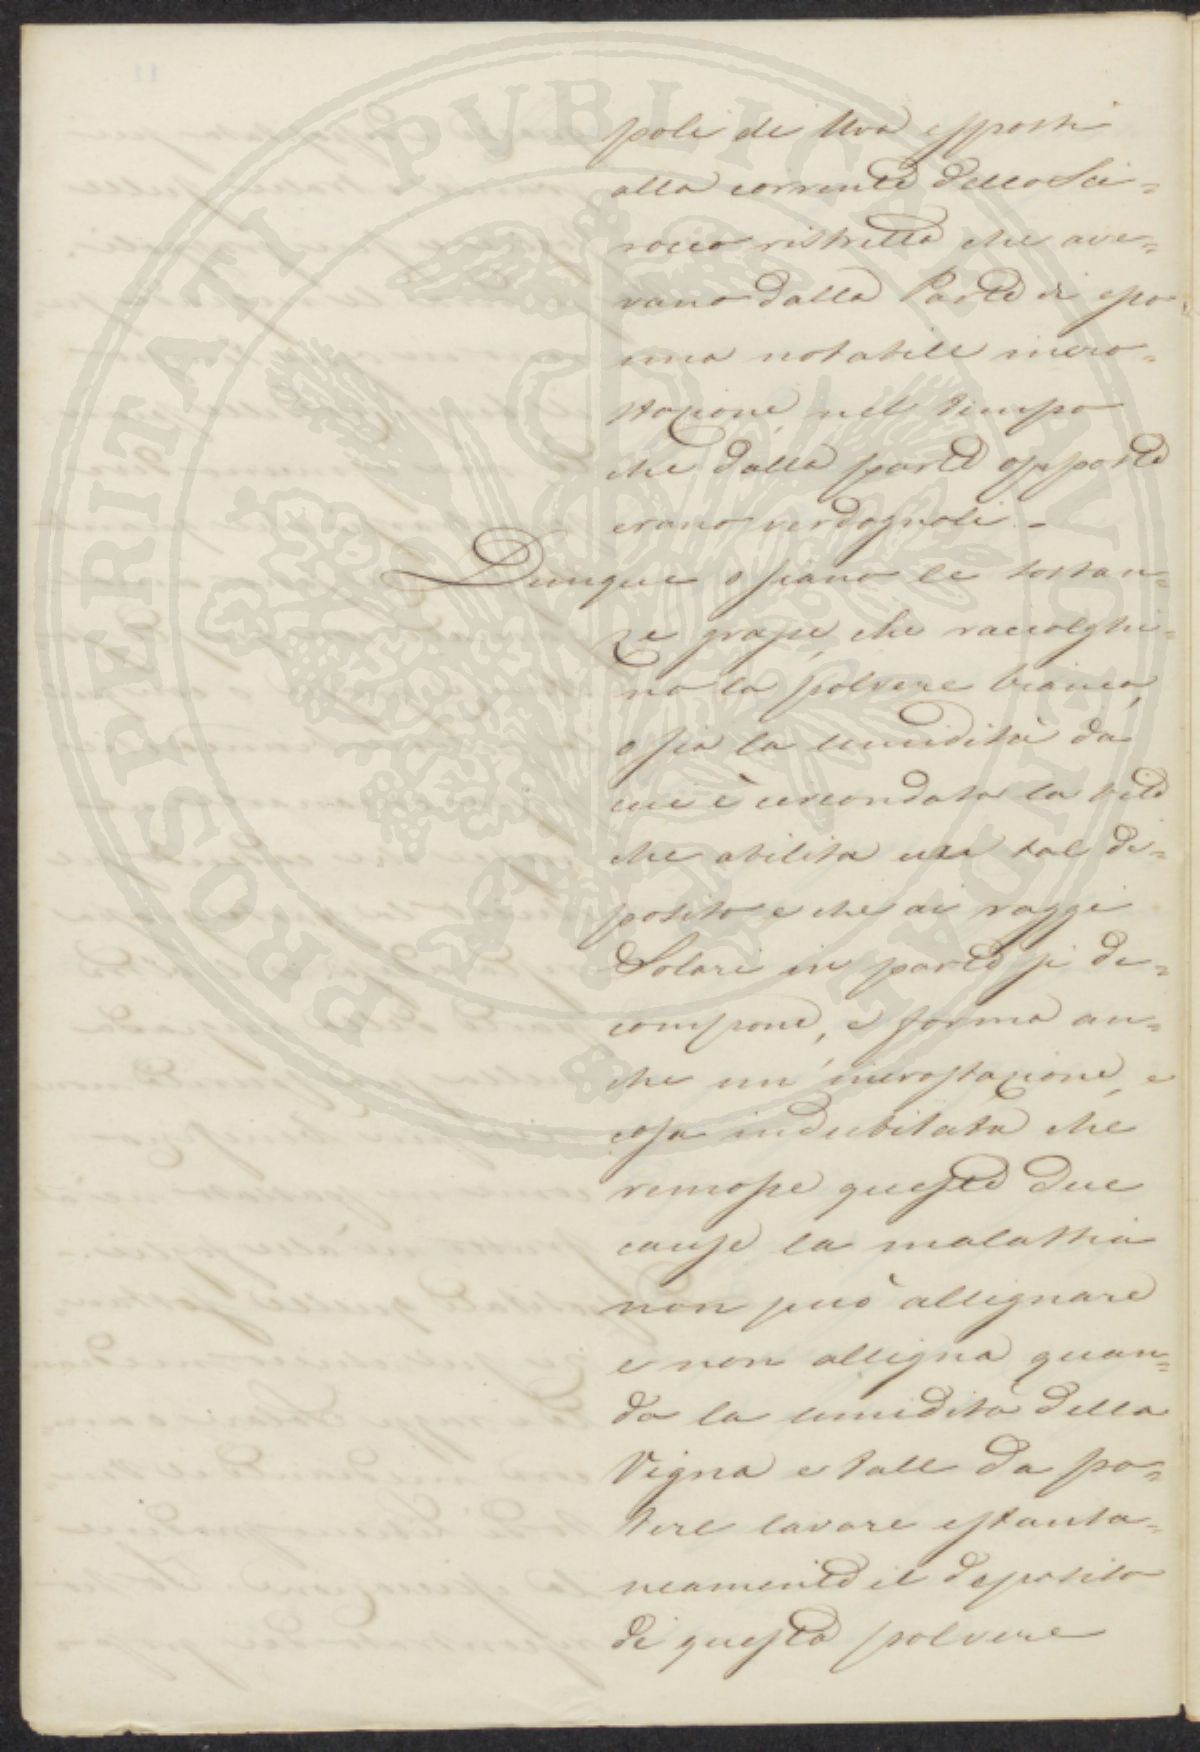 PROSPERITATI PUBLICAE AUGENDAE
poli di Uva esposti
alla corrente dello Sci=
rocco ristretto che ave=
vano dalla Parte di esso
una notabile incro=
stazione, nel tempo
che dalla parte opposta
erano verdognoli.
Dunque o siano le sostan=
ze grasse, che raccolghi=
no la polvere bianca,
o sia la umidità da
cui è circondata la vite
che abilita un tal de=
posito e che ai raggi
Solari in parte si de=
compone, e forma an=
che un'incrostazione, e
cosa indubitata che
rimosse queste due
cause la malattia
non può allignare
e non alligna quan=
do la umidità della
Vigna e tale da po=
tere lavare istanta=
neamente il deposito
di questa polvere